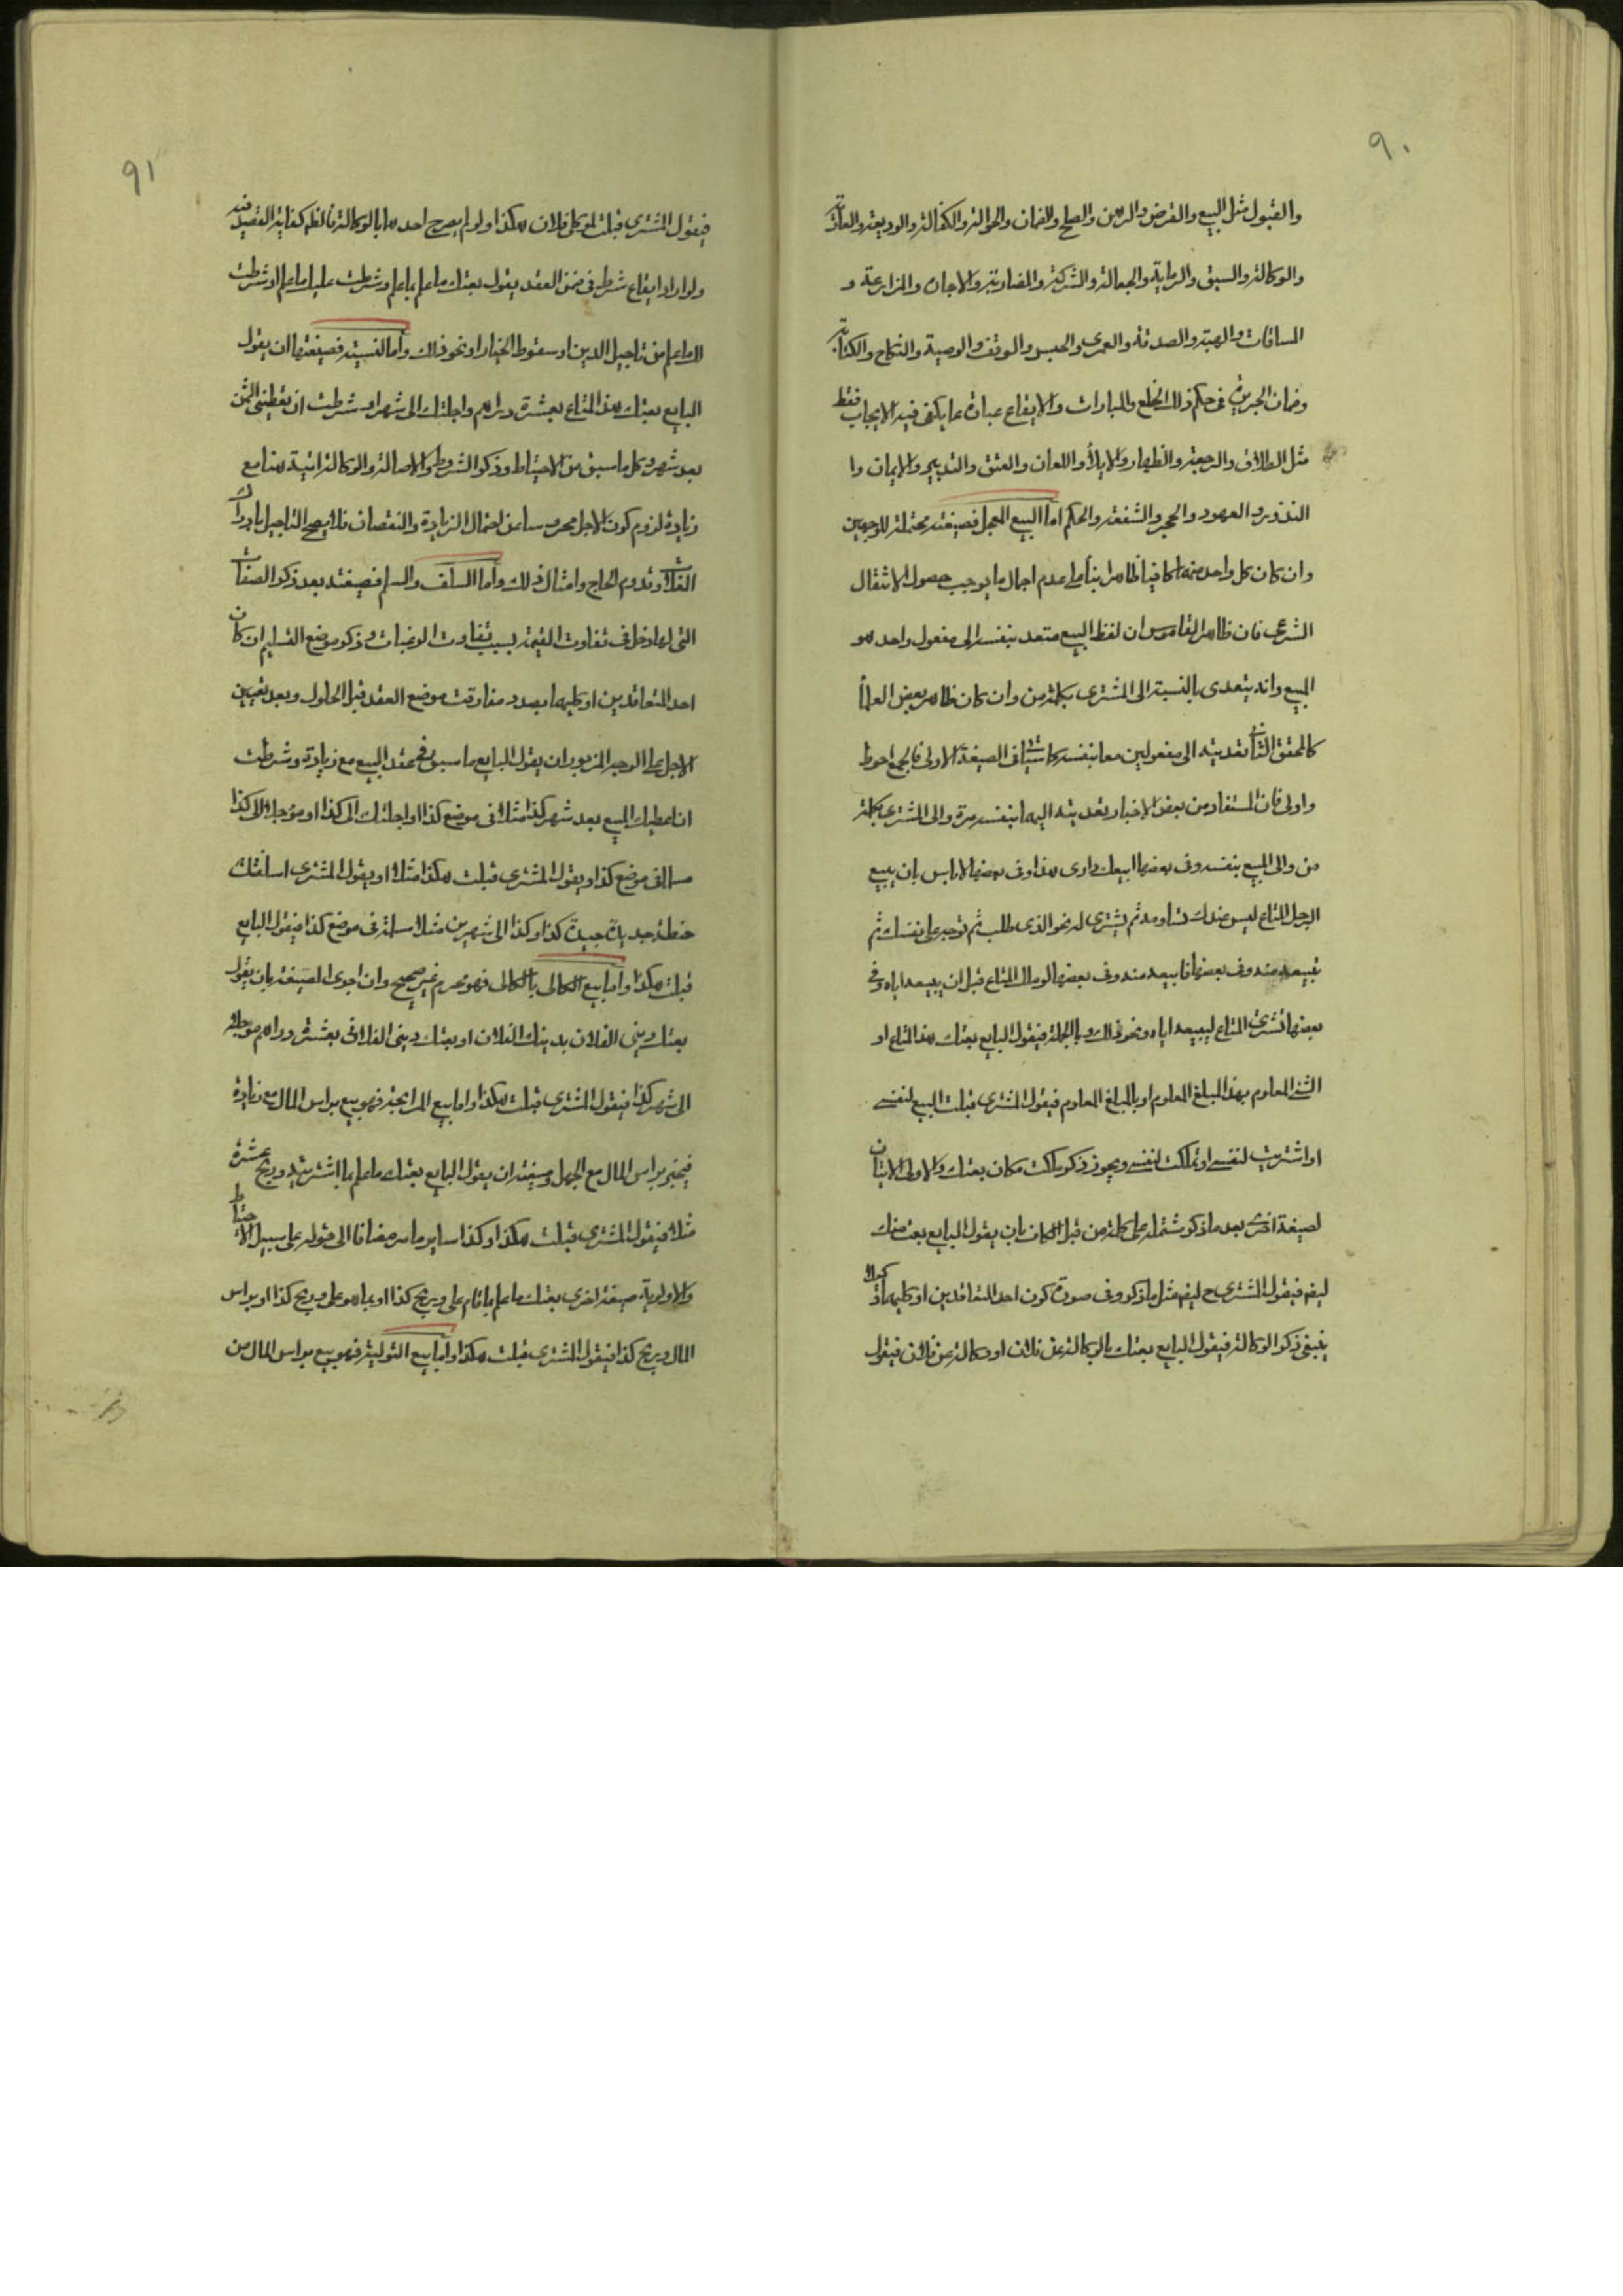 ٩٠
والقبول مثل البيع والقرض والرهن والصلح والضمان والحوالة والكفالة والوديعة والعارية
والوكالة والسبق والرماية والجعالة والشركة والمضاربة والاجارة والمزارعة و
المساقات والهبة والصدقة والعمرى والحبس والوقف والوصية والنكاح والكتابة
وضمان الجريرة في حكم ذلك الخلع والمبارات والايقاع عبارة عما يكفى فيه الايجاب فقط
مثل الطلاق والرجعة والظهار والايلاء واللعان والعتق والتدبير والايمان وا
النذور والعهود والحجر والشفعة والحكم اما البيع المعجل فصيغته محتملة للوجهين
وان كان كل واحد منها كافيا ظاهرا بناء على عدم اجمال ما يوجب حصول الانتقال
الشرعى فان ظاهر القاموس ان لفظ البيع متعد بنفسه الى مفعول واحد هو
المبيع وانه يتعدى بالنسبة الى المشترى بكلمة من وان كان ظاهر بعض العلماء
كالمحقق الثانى تعديته الى مفعولين معا بنفسه كما سيأتى في الصيغة الاولى فالجمع احوط
واولى فان المستفاد من بعض الاخبار تعديته اليهما بنفسه مرة والى المشترى بكلمة
من والى المبيع بنفسه وفى بعضها ابيعك دارى هذا وفى بعضها لاباس بان يبيع
الرجل المتاع ليس عندك تساومه ثم يشترى له نحو الذى طلب ثم توجبه على نفسك ثم
تبيعه منه وفى بعضها فابيعه منه وفى بعضها لو مال المتاع قبل ان يبيعه اياه وفى
بعضها تشترى المتاع ليبيعه اياه ونحو ذلك وبالجملة فيقول البايع بعتك هذا المتاع او
الشئ المعلوم بهذا المبلغ المعلوم او بالمبلغ المعلوم فيقول المشترى قبلت البيع لنفسى
او اشتريت لنفسى او تملكت لنفسى ويجوز ذكر ملكت مكان بعتك والاولى الاتيان
لصيغة اخرى بعد ما ذكر مشتملة على كلمة من قبل الكاف بان يقول البايع بعت منك
ليفه فيقول المشترى ح ليفه مثل ما ذكر وفى صورة كون احد المتعاقدين او كليهما وكيلا
ينبغى ذكر الوكالة فيقول البايع بعتك بالوكالة عن فلان او وكالة عن فلان فيقول
٩١
فيقول المشترى قبلت لموكلى فلان هكذا ولو لم يصرح احدهما بالوكالة فالظاهر كفاية القصد فيه
ولو اراد ايقاع شرط في ضمن العقد يقول بعتك ما علم بما علم وشرطت عليك ما علم او شرطت
لك ما علم من تاجيل الدين او سقوط الخيار او نحو ذلك واما النسية فصيغتها ان يقول
البايع بعتك هذا المتاع بعشرة دراهم واجلتك الى شهر او شرطت ان تعطينى الثمن
بعد شهر وكل ما سبق من الاحتياط وذكر الشروط والاصالة والوكالة اتية هنا مع
زيادة لزوم كون الاجل محروسا من احتمال الزيادة والنقصان فلا يصح التاجيل بادراك
الغلات وقدوم الحاج وامثال ذلك واما السلف والسلم فصيغته بعد ذكر الصفات
التى لها دخل في تفاوت القيمة بسبب تفاوت الرغبات وذكر موضع التسليم ان كان
احد المتعاقدين او كليهما بصدد مفارقت موضع العقد قبل الحلول وبعد تعيين
الاجل على الوجه المزبور ان يقول البايع ما سبق في عقد البيع مع زيادة وشرطت
ان اعطيك المبيع بعد شهر كذا مثلا في موضع كذا او اجلتك الى كذا او مؤجلا الى كذا
مسلما في موضع كذا ويقول المشترى قبلت هكذا مثلا او يقول المشترى اسلفتك
حنطة جديدة جيدة كذا وكذا الى شهرين مثلا مسلمة في موضع كذا فيقول البايع
قبلت هكذا واما بيع الكالى بالكالى فهو محرم غير صحيح وان اجرى الصيغة بان يقول
بعتك دينى الفلان بدينك الفلان او بعتك دينى الفلانى بعشرة دراهم مؤجلة
الى شهر كذا فيقول المشترى قبلت هكذا واما بيع المرابحة فهو بيع براس المال مع زيادة
فيخبر براس المال مع الجهل وصيغته ان يقول البايع بعتك ما علم بما اشتريته وربح عشرة
مثلا فيقول المشترى قبلت هكذا وكذا ساير ما مر مضافا الى قوله على سبيل الاحتياط
والاولوية صيغة اخرى بعتك ما علم بما قام على وربح كذا او بما هو على وربح كذا او براس
المال وربح كذا فيقول المشترى قبلت هكذا واما بيع التولية فهو بيع براس المال من